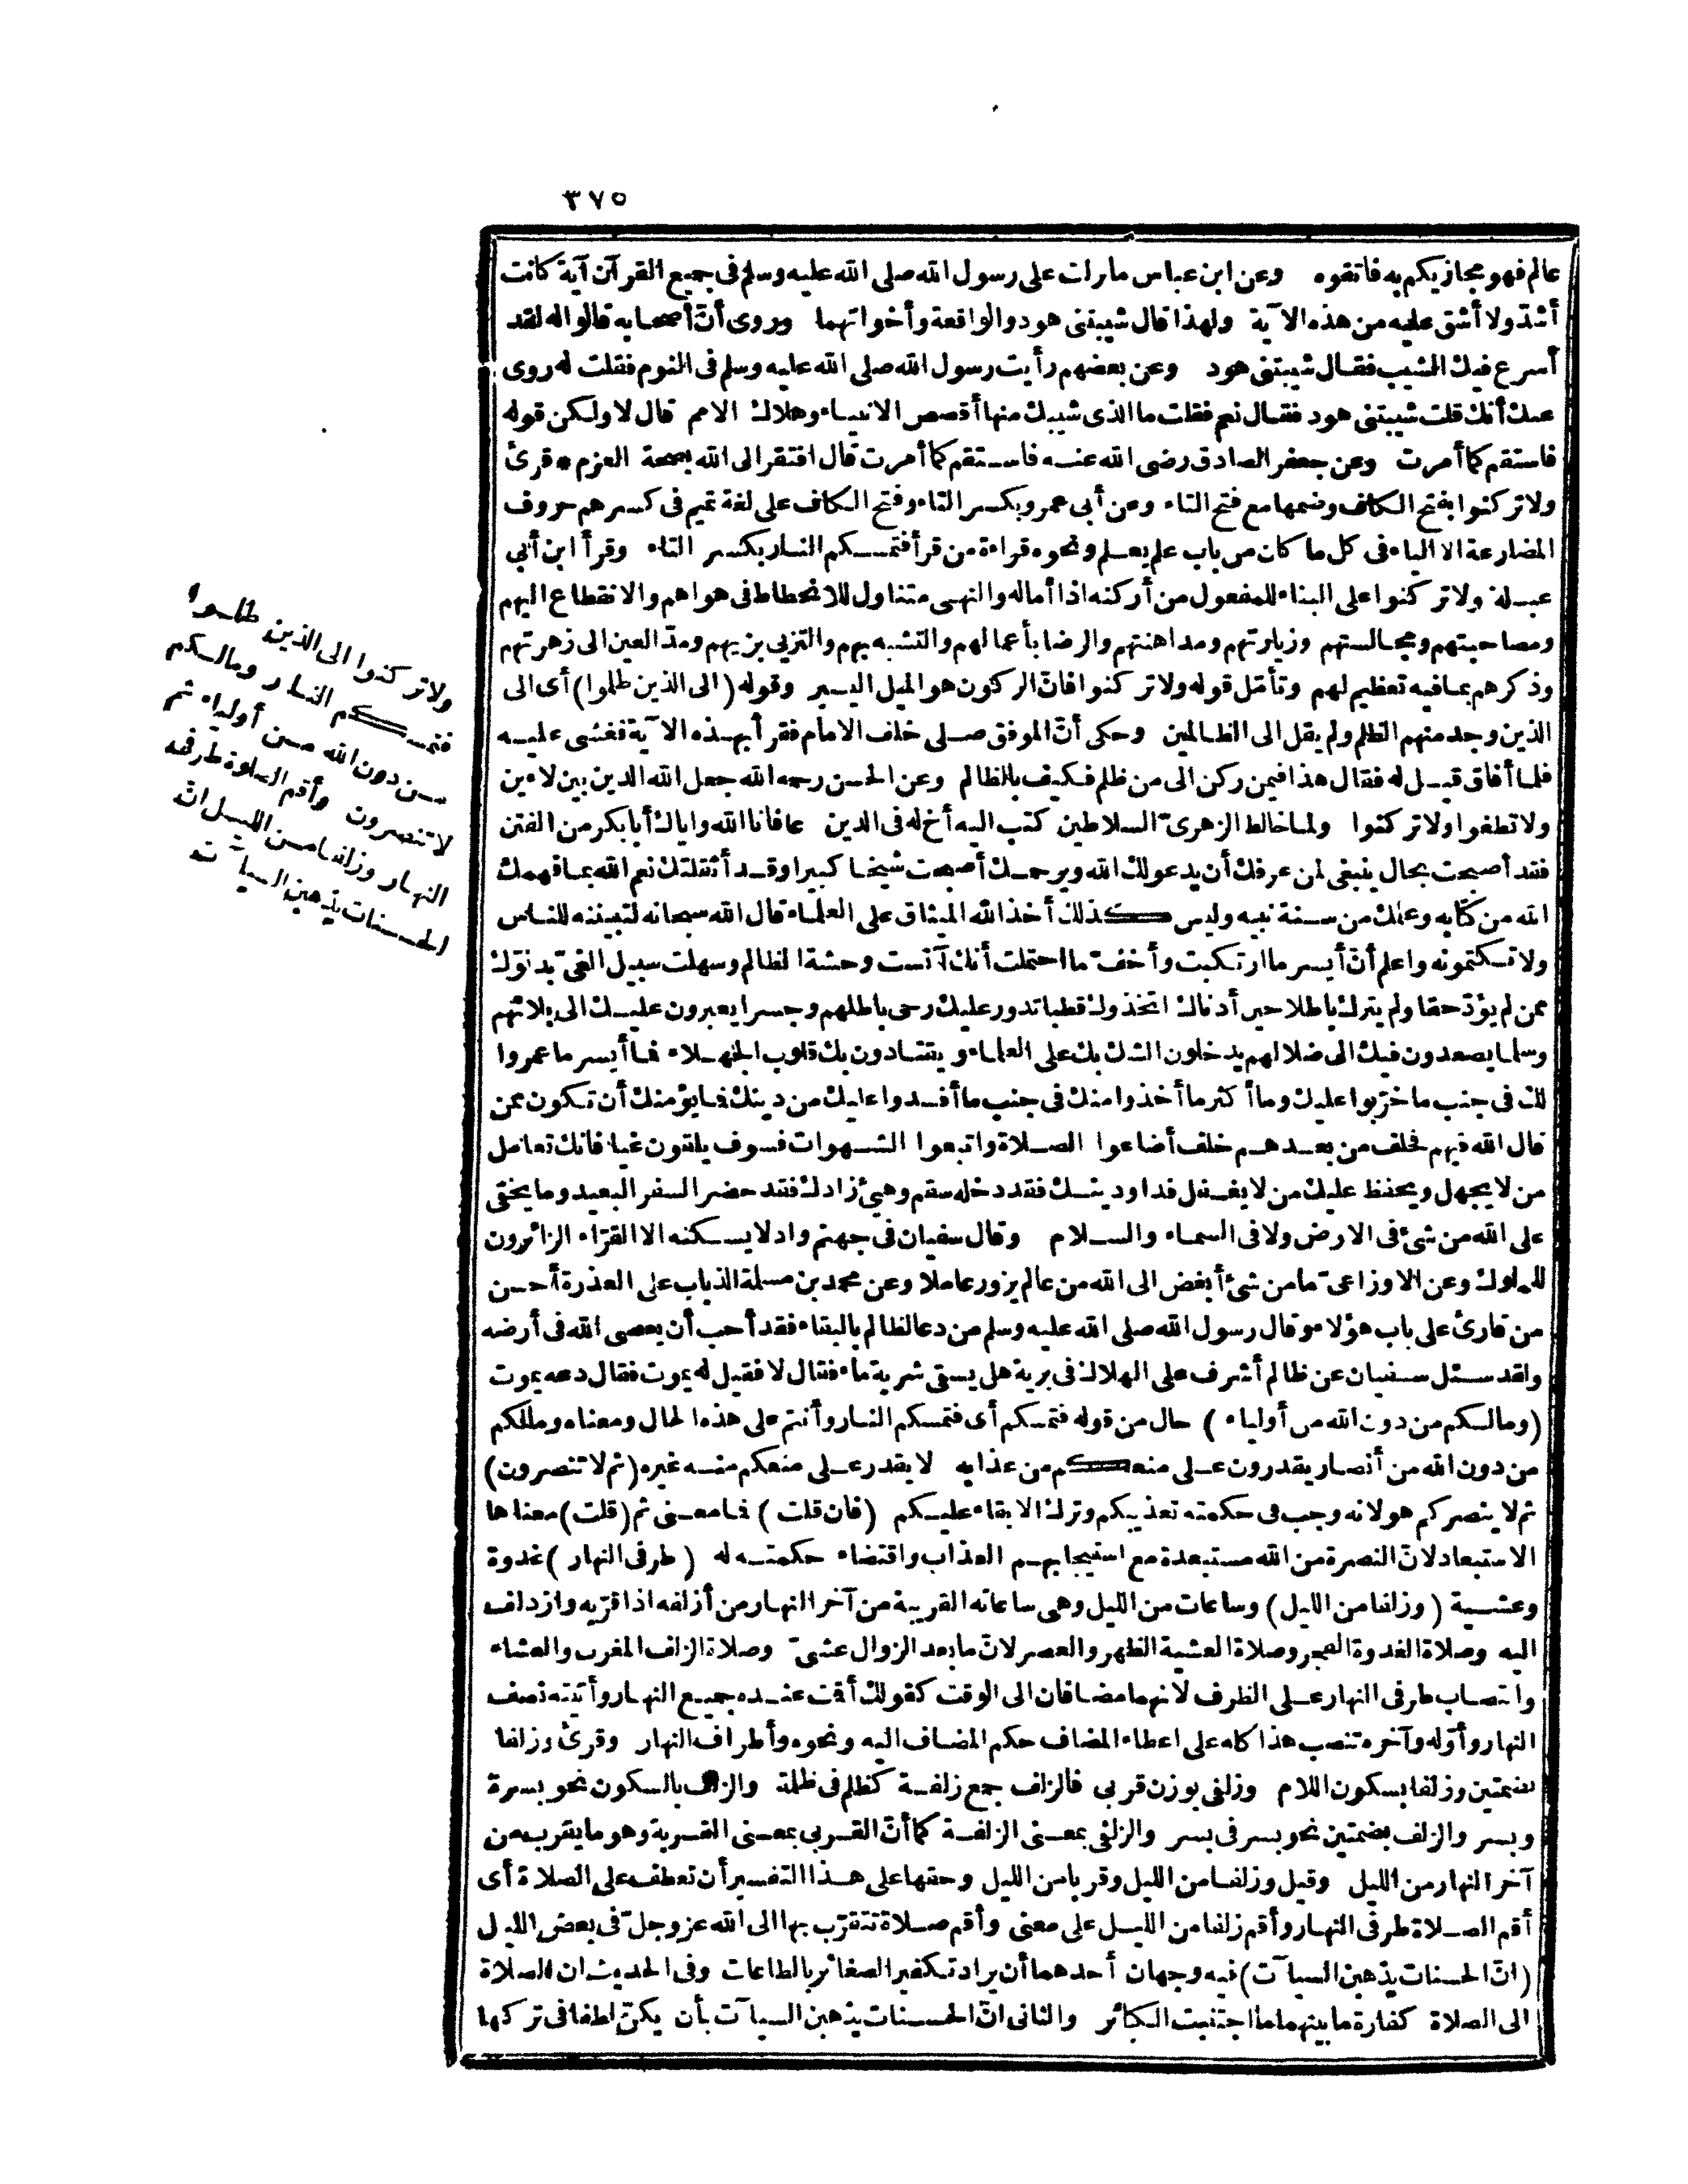 ٣٧٥
عالم فهو مجازيكم به فاتقوه وعن ابن عباس ما نزلت على رسول الله صلى الله عليه وسلم فى جميع القرآن آية كانت
أشدّ ولا أشق عليه من هذه الآية ولهذا قال شيبتنى هود والواقعة وأخواتهما وروى أنّ أصحابه قالوا له لقد
أسرع فيك الشيب فقال شيبتنى هود وعن بعضهم رأيت رسول الله صلى الله عليه وسلم فى النوم فقلت له روى
عنك أنك قلت شيبتنى هود فقال نعم فقلت ما الذى شيبك منها أقصص الانبياء وهلاك الامم قال لا ولكن قوله
فاستقم كما أمرت وعن جعفر الصادق رضى الله عنه فاستقم كما أمرت قال افتقر الى الله بصحة العزم * قرئ
ولا تركنوا بفتح الكاف وضمها مع فتح التاء وعن أبى عمرو بكسر التاء وفتح الكاف على لغة تميم فى كسرهم حروف
المضارعة الا الياء فى كل ما كان من باب علم يعلم ونحوه قراءة من قرأ فتمسكم النار بكسر التاء وقرأ ابن أبى
عبلة ولا تركنوا على البناء للمفعول من أركنه اذا أماله والنهى متناول للانحطاط فى هواهم والانقطاع اليهم
ومصاحبتهم ومجالستهم وزيارتهم ومداهنتهم والرضا بأعمالهم والتشبه بهم والتزيى بزيهم ومدّ العين الى زهرتهم
وذكرهم بما فيه تعظيم لهم وتأمّل قوله ولا تركنوا فانّ الركون هو الميل اليسير وقوله (الى الذين ظلموا) أى الى
الذين وجد منهم الظلم ولم يقل الى الظالمين وحكى أنّ الموفق صلى خلف الامام فقرأ بهذه الآية فغشى عليه
فلما أفاق قيل له فقال هذا فيمن ركن الى من ظلم فكيف بالظالم وعن الحسن رحمه الله جعل الله الدين بين لاءين
ولا تطغوا ولا تركنوا ولما خالط الزهرىّ السلاطين كتب اليه أخ له فى الدين عافانا الله واياك أبا بكر من الفتن
فقد أصبحت بحال ينبغى لمن عرفك أن يدعو لك الله ويرحمك أصبحت شيخا كبيرا وقد أثقلتك نعم الله بما فهمك
الله من كتابه وعلمك من سنة نبيه وليس كذلك أخذ الله الميثاق على العلماء قال الله سبحانه لتبيننه للناس
ولا تكتمونه واعلم أنّ أيسر ما ارتكبت وأخفّ ما احتملت أنك آنست وحشة الظالم وسهلت سبيل الغىّ بدنوّك
ممن لم يؤدّ حقا ولم يترك باطلا حين أدناك اتخذوك قطبا تدور عليك رحى باطلهم وجسرا يعبرون عليك الى بلائهم
وسلما يصعدون فيك الى ضلالهم يدخلون الشك بك على العلماء ويقتادون بك قلوب الجهلاء فما أيسر ما عمروا
لك فى جنب ما خرّبوا عليك وما أكثر ما أخذوا منك فى جنب ما أفسدوا عليك من دينك فما يؤمنك أن تكون ممن
قال الله فيهم فخلف من بعدهم خلف أضاعوا الصلاة واتبعوا الشهوات فسوف يلقون غيا فانك تعامل
من لا يجهل ويحفظ عليك من لا يغفل فداو دينك فقد دخله سقم وهيئ زادك فقد حضر السفر البعيد وما يخفى
على الله من شئ فى الارض ولا فى السماء والسلام وقال سفيان فى جهنم واد لا يسكنه الا القرّاء الزائرون
للملوك وعن الاوزاعىّ ما من شئ أبغض الى الله من عالم يزور عاملا وعن محمد بن مسلمة الذباب على العذرة أحسن
من قارئ على باب هؤلاء وقال رسول الله صلى الله عليه وسلم من دعا لظالم بالبقاء فقد أحب أن يعصى الله فى أرضه
ولقد سئل سفيان عن ظالم أشرف على الهلاك فى برية هل يسقى شربة ماء فقال لا فقيل له يموت فقال دعه يموت
(وما لكم من دون الله من أولياء) حال من قوله فتمسكم أى فتمسكم النار وأنتم على هذه الحال ومعناه وما لكم
من دون الله من أنصار يقدرون على منعكم من عذابه لا يقدر على منعكم منه غيره (ثم لا تنصرون)
ثم لا ينصركم هو لانه وجب فى حكمته تعذيبكم وترك الابقاء عليكم (فان قلت) فما معنى ثم (قلت) معناها
الاستبعاد لانّ النصرة من الله مستبعدة مع استيجابهم العذاب واقتضاء حكمته له (طرفى النهار) غدوة
وعشية (وزلفا من الليل) وساعات من الليل وهى ساعاته القريبة من آخر النهار من أزلفه اذا قرّبه وازدلف
اليه وصلاة الغدوة الفجر وصلاة العشية الظهر والعصر لانّ ما بعد الزوال عشىّ وصلاة الزلف المغرب والعشاء
وانتصاب طرفى النهار على الظرف لانهما مضافان الى الوقت كقولك أقت عنده جميع النهار وأتيته نصف
النهار وأوّله وآخره تنصب هذا كله على اعطاء المضاف حكم المضاف اليه ونحوه وأطراف النهار وقرئ وزلفا
بضمتين وزلفا بسكون اللام وزلفى بوزن قربى فالزلف جمع زلفة كظلم فى ظلمة والزلف بالسكون نحو بسرة
وبسر والزلف بضمتين نحو بسر فى بسر والزلفى بمعنى الزلفة كما أنّ القربى بمعنى القربة وهو ما يقرب من
آخر النهار من الليل وقيل وزلفا من الليل وقربا من الليل وحقها على هذا التفسير أن تعطف على الصلاة أى
أقم الصلاة طرفى النهار وأقم زلفا من الليل على معنى وأقم صلاة تتقرّب بها الى الله عز وجلّ فى بعض الليل
(انّ الحسنات يذهبن السيآت) فيه وجهان أحدهما أن يراد تكفير الصغائر بالطاعات وفى الحديث ان الصلاة
الى الصلاة كفارة ما بينهما ما اجتنبت الكبائر والثانى انّ الحسنات يذهبن السيآت بأن يكنّ لطفا فى تركها
ولا تركنوا الى الذين ظلموا
فتمسكم النار وما لكم
من دون الله من أولياء ثم
لا تنصرون وأقم الصلوة طرفى
النهار وزلفا من الليل انّ
الحسنات يذهبن السيآت